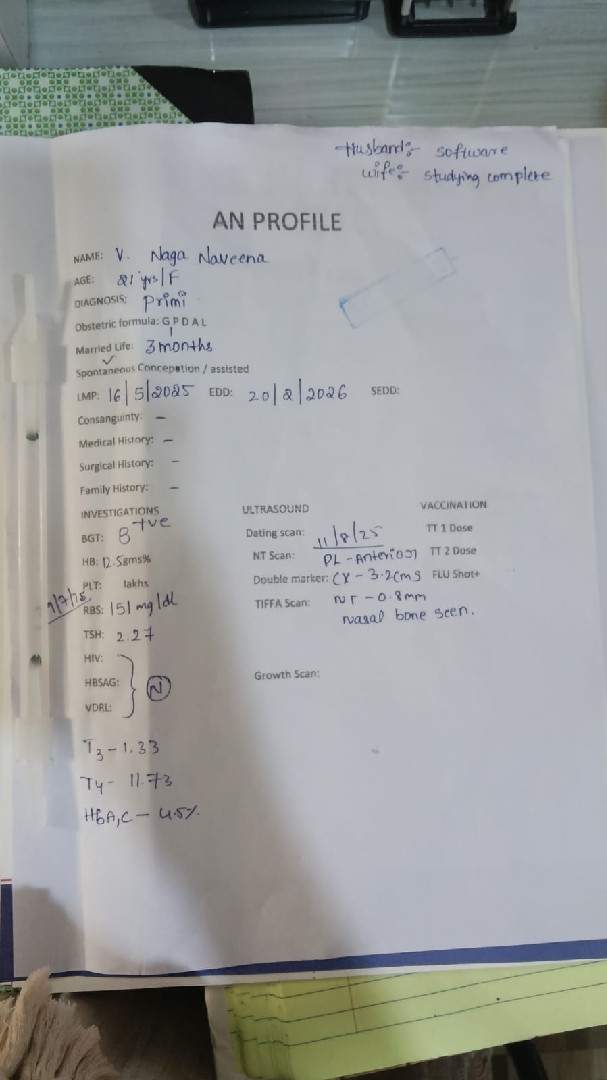 Husband:- software
wife:- studying complete
AN PROFILE
NAME: V. Naga Naveena
AGE: 21 yrs/F
DIAGNOSIS: Primi
Obstetric formula: G P D A L
Married Life: 3 months
Spontaneous Conception / assisted
LMP: 16/5/2025 EDD: 20/2/2026 SEDD:
Consanguinty: -
Medical History: -
Surgical History: -
Family History: -
INVESTIGATIONS
BGT: B +ve
HB: 12.5gms%
PLT: lakhs
RBS: 151 mg/dl
TSH: 2.27
HIV:
HBSAG:
VDRL:
N
T3 - 1.33
T4 - 11.73
HbA1C - 4.5%
ULTRASOUND
Dating scan: 11/8/25
NT Scan: PL - Anterior
Double marker: CX - 3.2cms
TIFFA Scan: NT - 0.8mm
Nasal bone seen.
Growth Scan:
VACCINATION
TT 1 Dose
TT 2 Dose
FLU Shot+